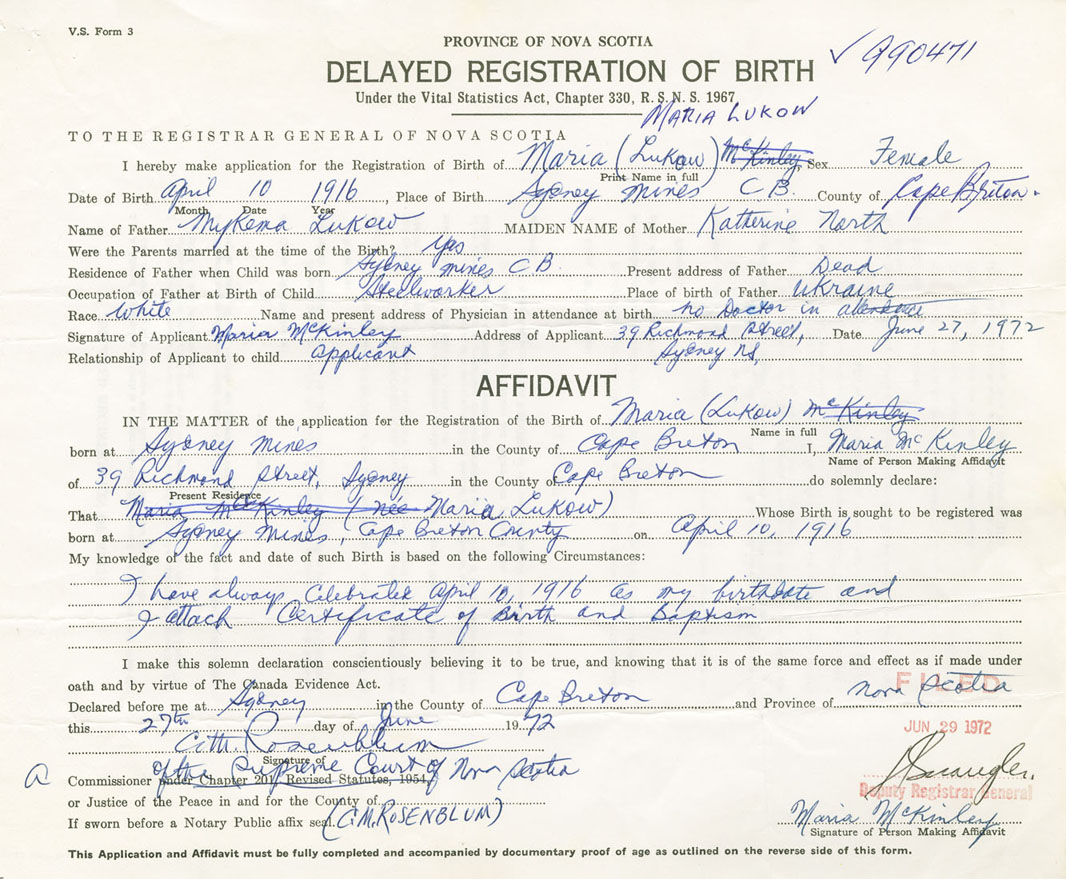 V.S. Form 3
PROVINCE OF NOVA SCOTIA
✓ 990471
DELAYED REGISTRATION OF BIRTH
Under the Vital Statistics Act, Chapter 330, R. S. N. S. 1967
MARIA LUKOW
TO THE REGISTRAR GENERAL OF NOVA SCOTIA
I hereby make application for the Registration of Birth of Maria (Lukow) McKinley Sex Female
Print Name in full
Date of Birth April 10 1916 , Place of Birth Sydney Mines C B. County of Cape Breton.
Month Date Year
Name of Father Mykema Lukow MAIDEN NAME of Mother Katherine North
Were the Parents married at the time of the Birth? Yes
Residence of Father when Child was born Sydney Mines C B Present address of Father Dead
Occupation of Father at Birth of Child Steelworker Place of birth of Father Ukraine
Race White Name and present address of Physician in attendance at birth no Doctor in attendance
Signature of Applicant Maria McKinley Address of Applicant 39 Richmond Street, Date June 27, 1972
Relationship of Applicant to child applicant Sydney NS,
AFFIDAVIT
IN THE MATTER of the application for the Registration of the Birth of Maria (Lukow) McKinley
Name in full
born at Sydney Mines in the County of Cape Breton I, Maria McKinley
Name of Person Making Affidavit
of 39 Richmond Street, Sydney in the County of Cape Breton do solemnly declare:
Present Residence
That Maria McKinley (née Maria Lukow) Whose Birth is sought to be registered was
born at Sydney Mines, Cape Breton County on April 10, 1916
My knowledge of the fact and date of such Birth is based on the following Circumstances:
I have always celebrated April 10, 1916 as my birthdate and
I attach Certificate of Birth and Baptism
I make this solemn declaration conscientiously believing it to be true, and knowing that it is of the same force and effect as if made under
oath and by virtue of The Canada Evidence Act.
FILED
Declared before me at Sydney in the County of Cape Breton and Province of Nova Scotia
this 27th day of June 1972
JUN 29 1972
C.M. Rosenblum
Signature of
of the Supreme Court of Nova Scotia
a Commissioner under Chapter 201, Revised Statutes, 1954,
Deputy Registrar General
or Justice of the Peace in and for the County of
If sworn before a Notary Public affix seal. (C.M. ROSENBLUM)
Maria McKinley
Signature of Person Making Affidavit
This Application and Affidavit must be fully completed and accompanied by documentary proof of age as outlined on the reverse side of this form.